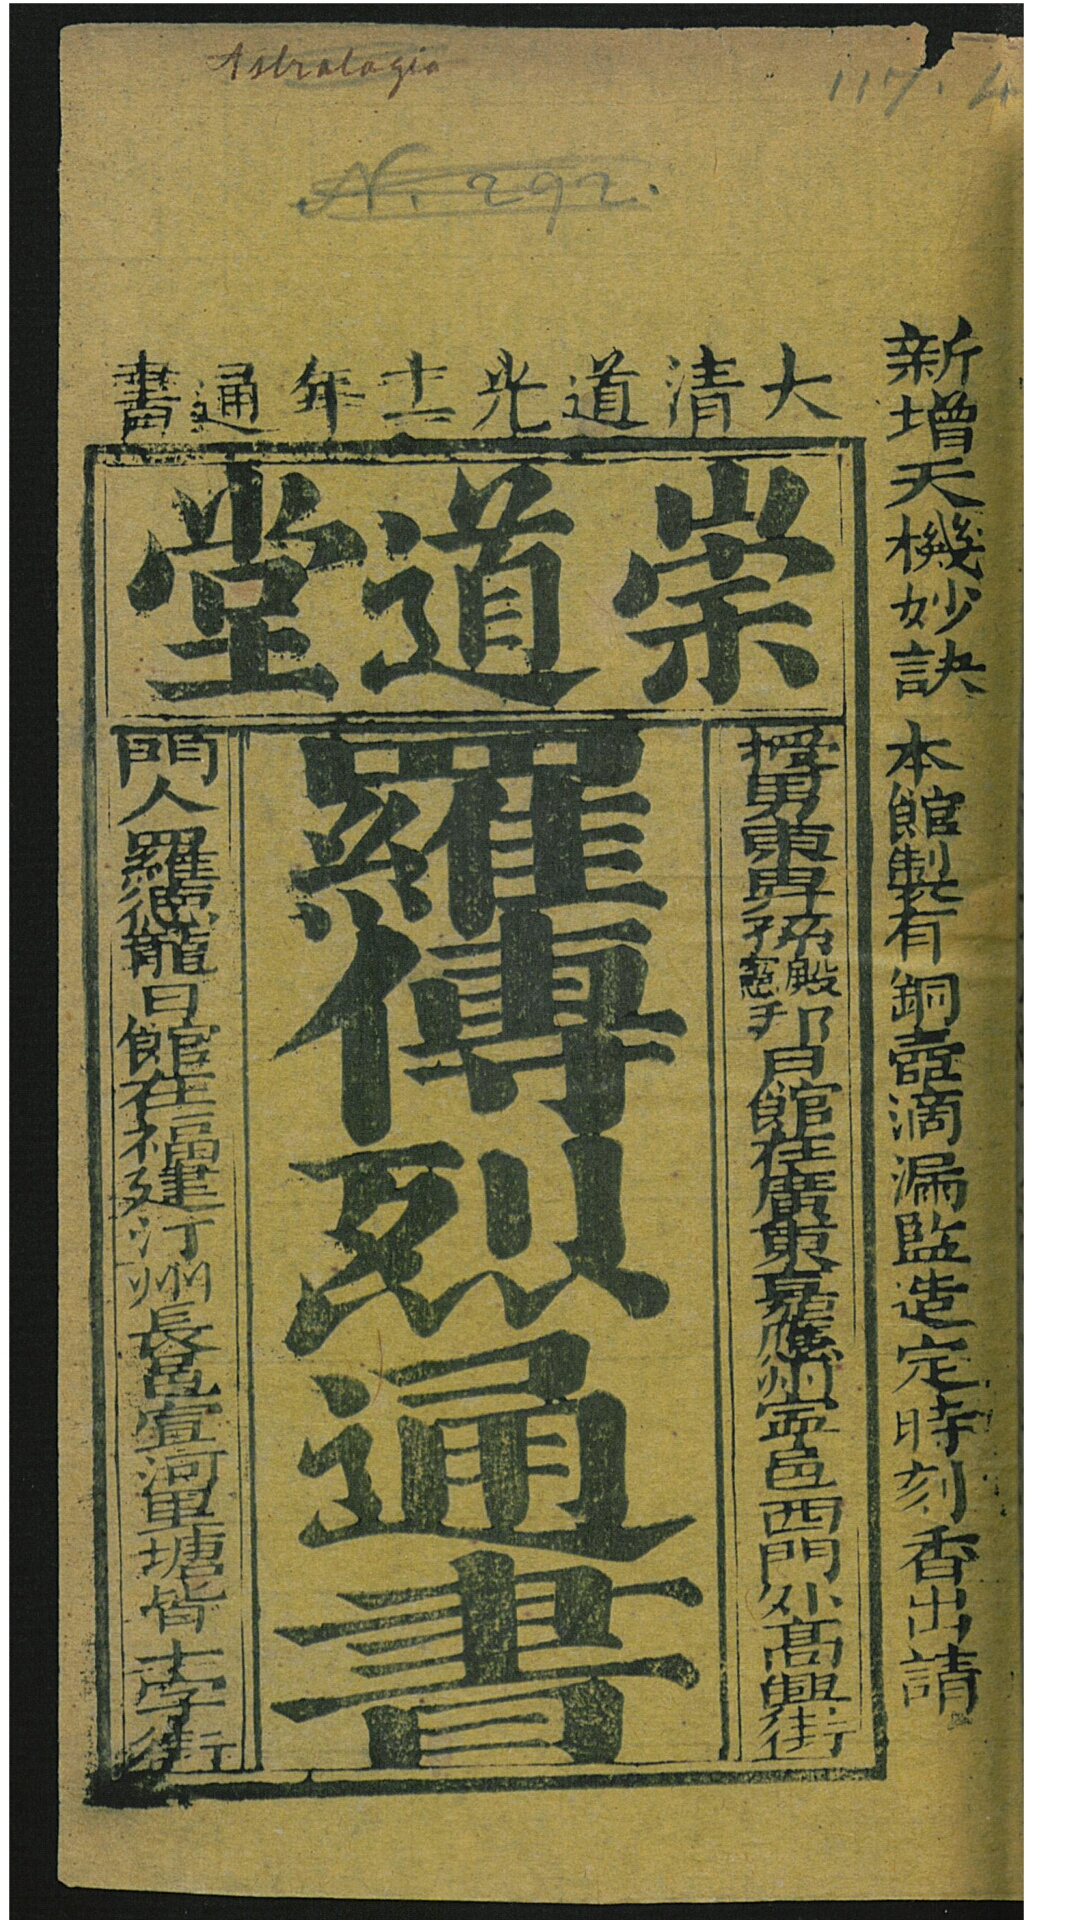 Astrologia
117.4
N. 292.
大清道光十二年通書
新增天機妙訣 本館製有銅壺滴漏監造定時刻香出請
崇道堂
擇男東典孫殿憲邦日館在廣東嘉應州寧邑西門外高興街
羅傳烈通書
門人羅德龍日館在福建汀州長邑宣河里塘背十字街